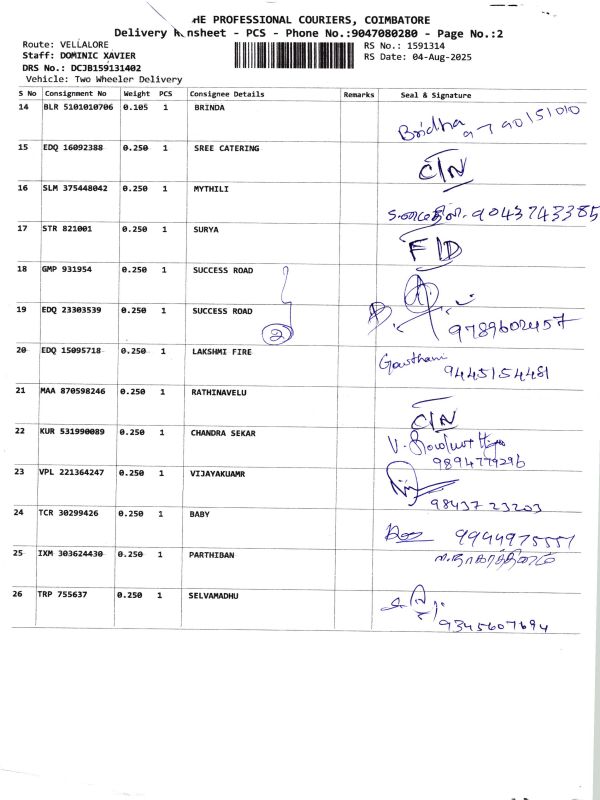 HE PROFESSIONAL COURIERS, COIMBATORE
Delivery Runsheet - PCS - Phone No.:9047080280 - Page No.:2
Route: VELLALORE RS No.: 1591314
Staff: DOMINIC XAVIER RS Date: 04-Aug-2025
DRS No.: DCJB159131402
Vehicle: Two Wheeler Delivery
S No Consignment No Weight PCS Consignee Details Remarks Seal & Signature
14 BLR 5101010706 0.105 1 BRINDA Bridha
15 EDQ 16092388 0.250 1 SREE CATERING C/N
16 SLM 375448042 0.250 1 MYTHILI 9043743385
17 STR 821001 0.250 1 SURYA F/D
18 GMP 931954 0.250 1 SUCCESS ROAD
19 EDQ 23303539 0.250 1 SUCCESS ROAD 2 9789602457
20 EDQ 15095718 0.250 1 LAKSHMI FIRE Gowthami 9445154481
21 MAA 870598246 0.250 1 RATHINAVELU C/N
22 KUR 531990089 0.250 1 CHANDRA SEKAR 9894779296
23 VPL 221364247 0.250 1 VIJAYAKUAMR 98437 23203
24 TCR 30299426 0.250 1 BABY 9944975551
25 IXM 303624430 0.250 1 PARTHIBAN
26 TRP 755637 0.250 1 SELVAMADHU 9345607694